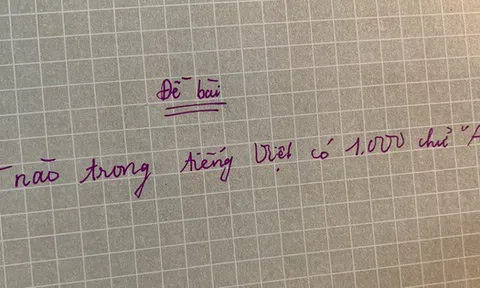 Đề bài
nào trong tiếng Việt có 1.000 chữ "A